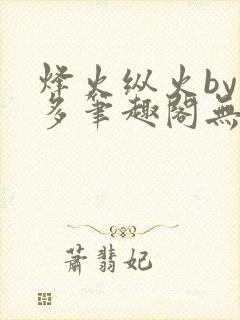 烽火纵火by
多笔趣阁無
萧翡妃